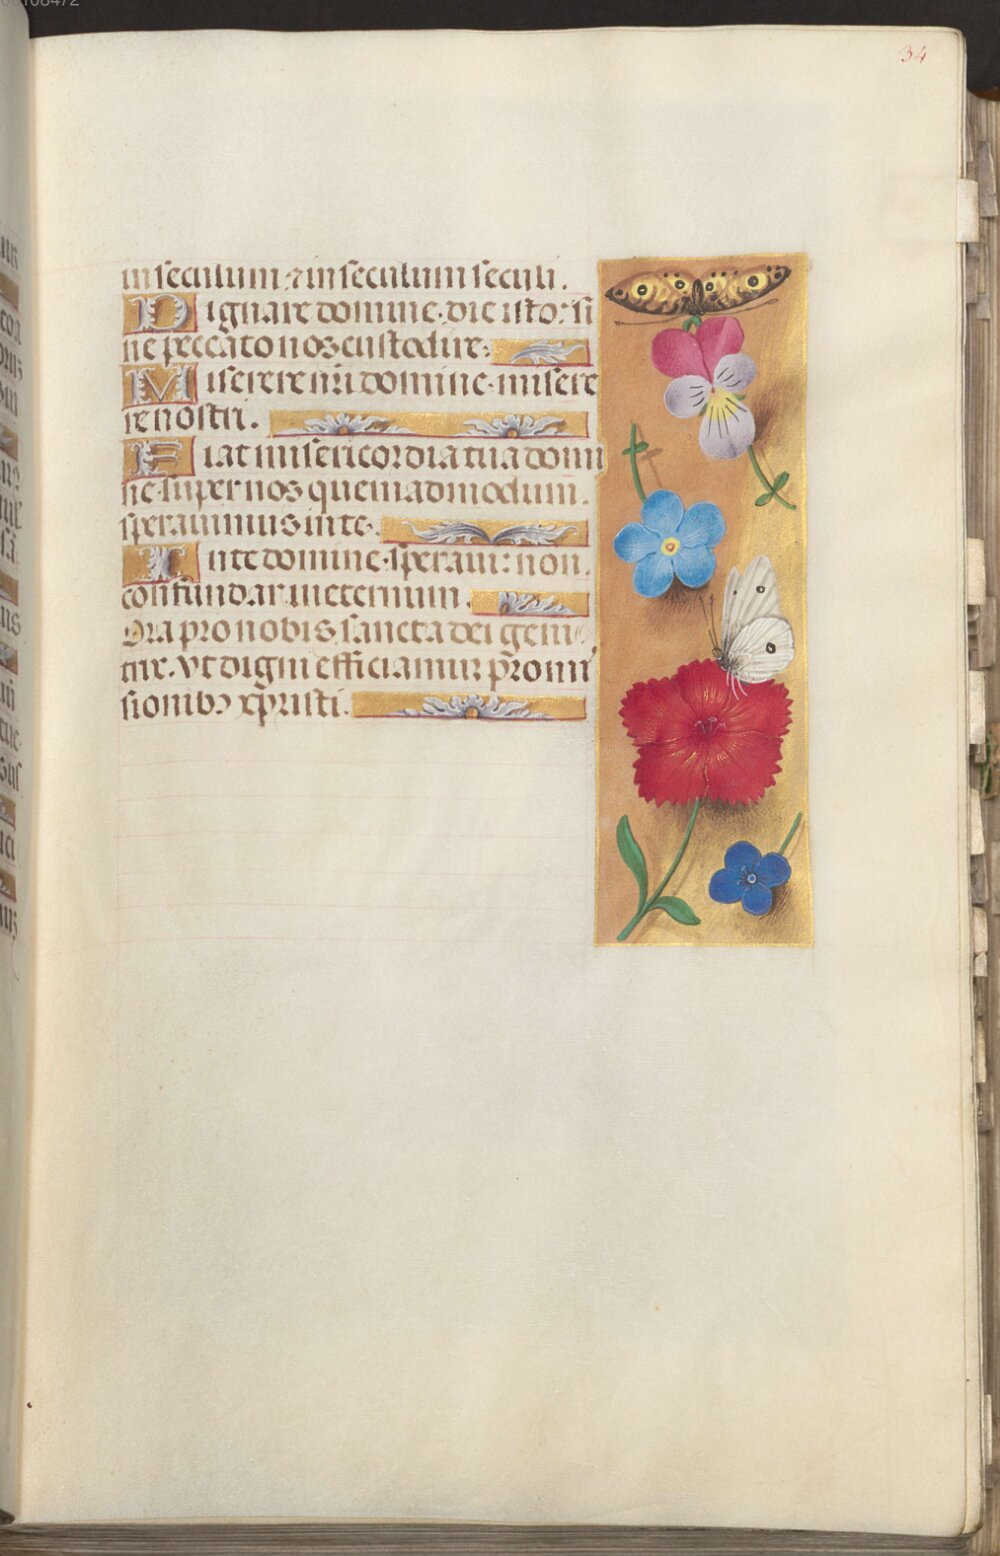 34
in seculum ⁊ in seculum seculi.
Dignare domine die isto: si
ne peccato nos custodire.
Miserere nr̄i domine. misere
re nostri.
Fiat misericordia tua domi
ne super nos quemadmodum.
sperauimus in te.
In te domine speraui: non.
confundar in eternum.
Ora pro nobis sancta dei geni
trix. vt digni efficiamur p̄romi
sionibꝰ xp̄risti.